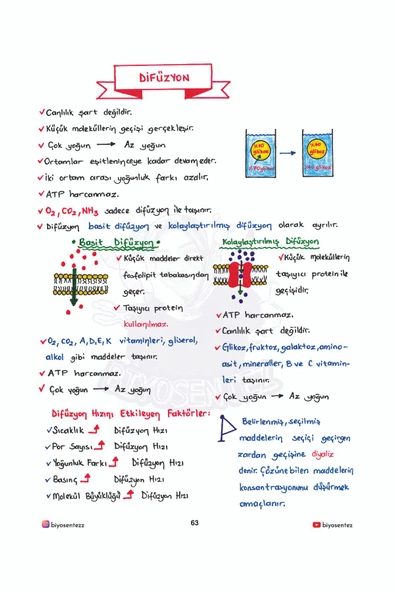 DİFÜZYON
✓Canlılık şart değildir.
✓Küçük moleküllerin geçişi gerçekleşir.
✓ Çok yoğun → Az yoğun
✓Ortamlar eşitleninceye kadar devam eder.
✓İki ortam arası yoğunluk farkı azalır.
✓ ATP harcanmaz.
✓ O₂, CO₂, NH₃ sadece difüzyon ile taşınır.
✓ Difüzyon basit difüzyon ve kolaylaştırılmış difüzyon olarak ayrılır.
Basit Difüzyon
✓Küçük maddeler direkt
fosfolipit tabakasından
geçer.
✓ Taşıyıcı protein
kullanılmaz.
✓O₂, CO₂, A,D,E,K vitaminleri, gliserol,
alkol gibi maddeler taşınır.
✓ ATP harcanmaz.
✓ Çok yoğun → Az yoğun
Kolaylaştırılmış Difüzyon
✓Küçük moleküllerin
taşıyıcı protein ile
geçişidir.
✓ ATP harcanmaz.
✓Canlılık şart değildir.
✓Glikoz, fruktoz, galaktoz, amino-
asit, mineraller, B ve C vitamin-
leri taşınır.
✓ Çok yoğun → Az yoğun
Difüzyon Hızını Etkileyen Faktörler:
✓Sıcaklık Difüzyon Hızı
✓Por Sayısı Difüzyon Hızı
✓Yoğunluk Farkı Difüzyon Hızı
✓Basınç Difüzyon Hızı
✓Molekül Büyüklüğü Difüzyon Hızı
Belirlenmiş, seçilmiş
maddelerin seçici geçirgen
zardan geçişine diyaliz
denir. Çözünebilen maddelerin
konsantrasyonunu düşürmek
amaçlanır.
biyosentezz
63
biyosentez